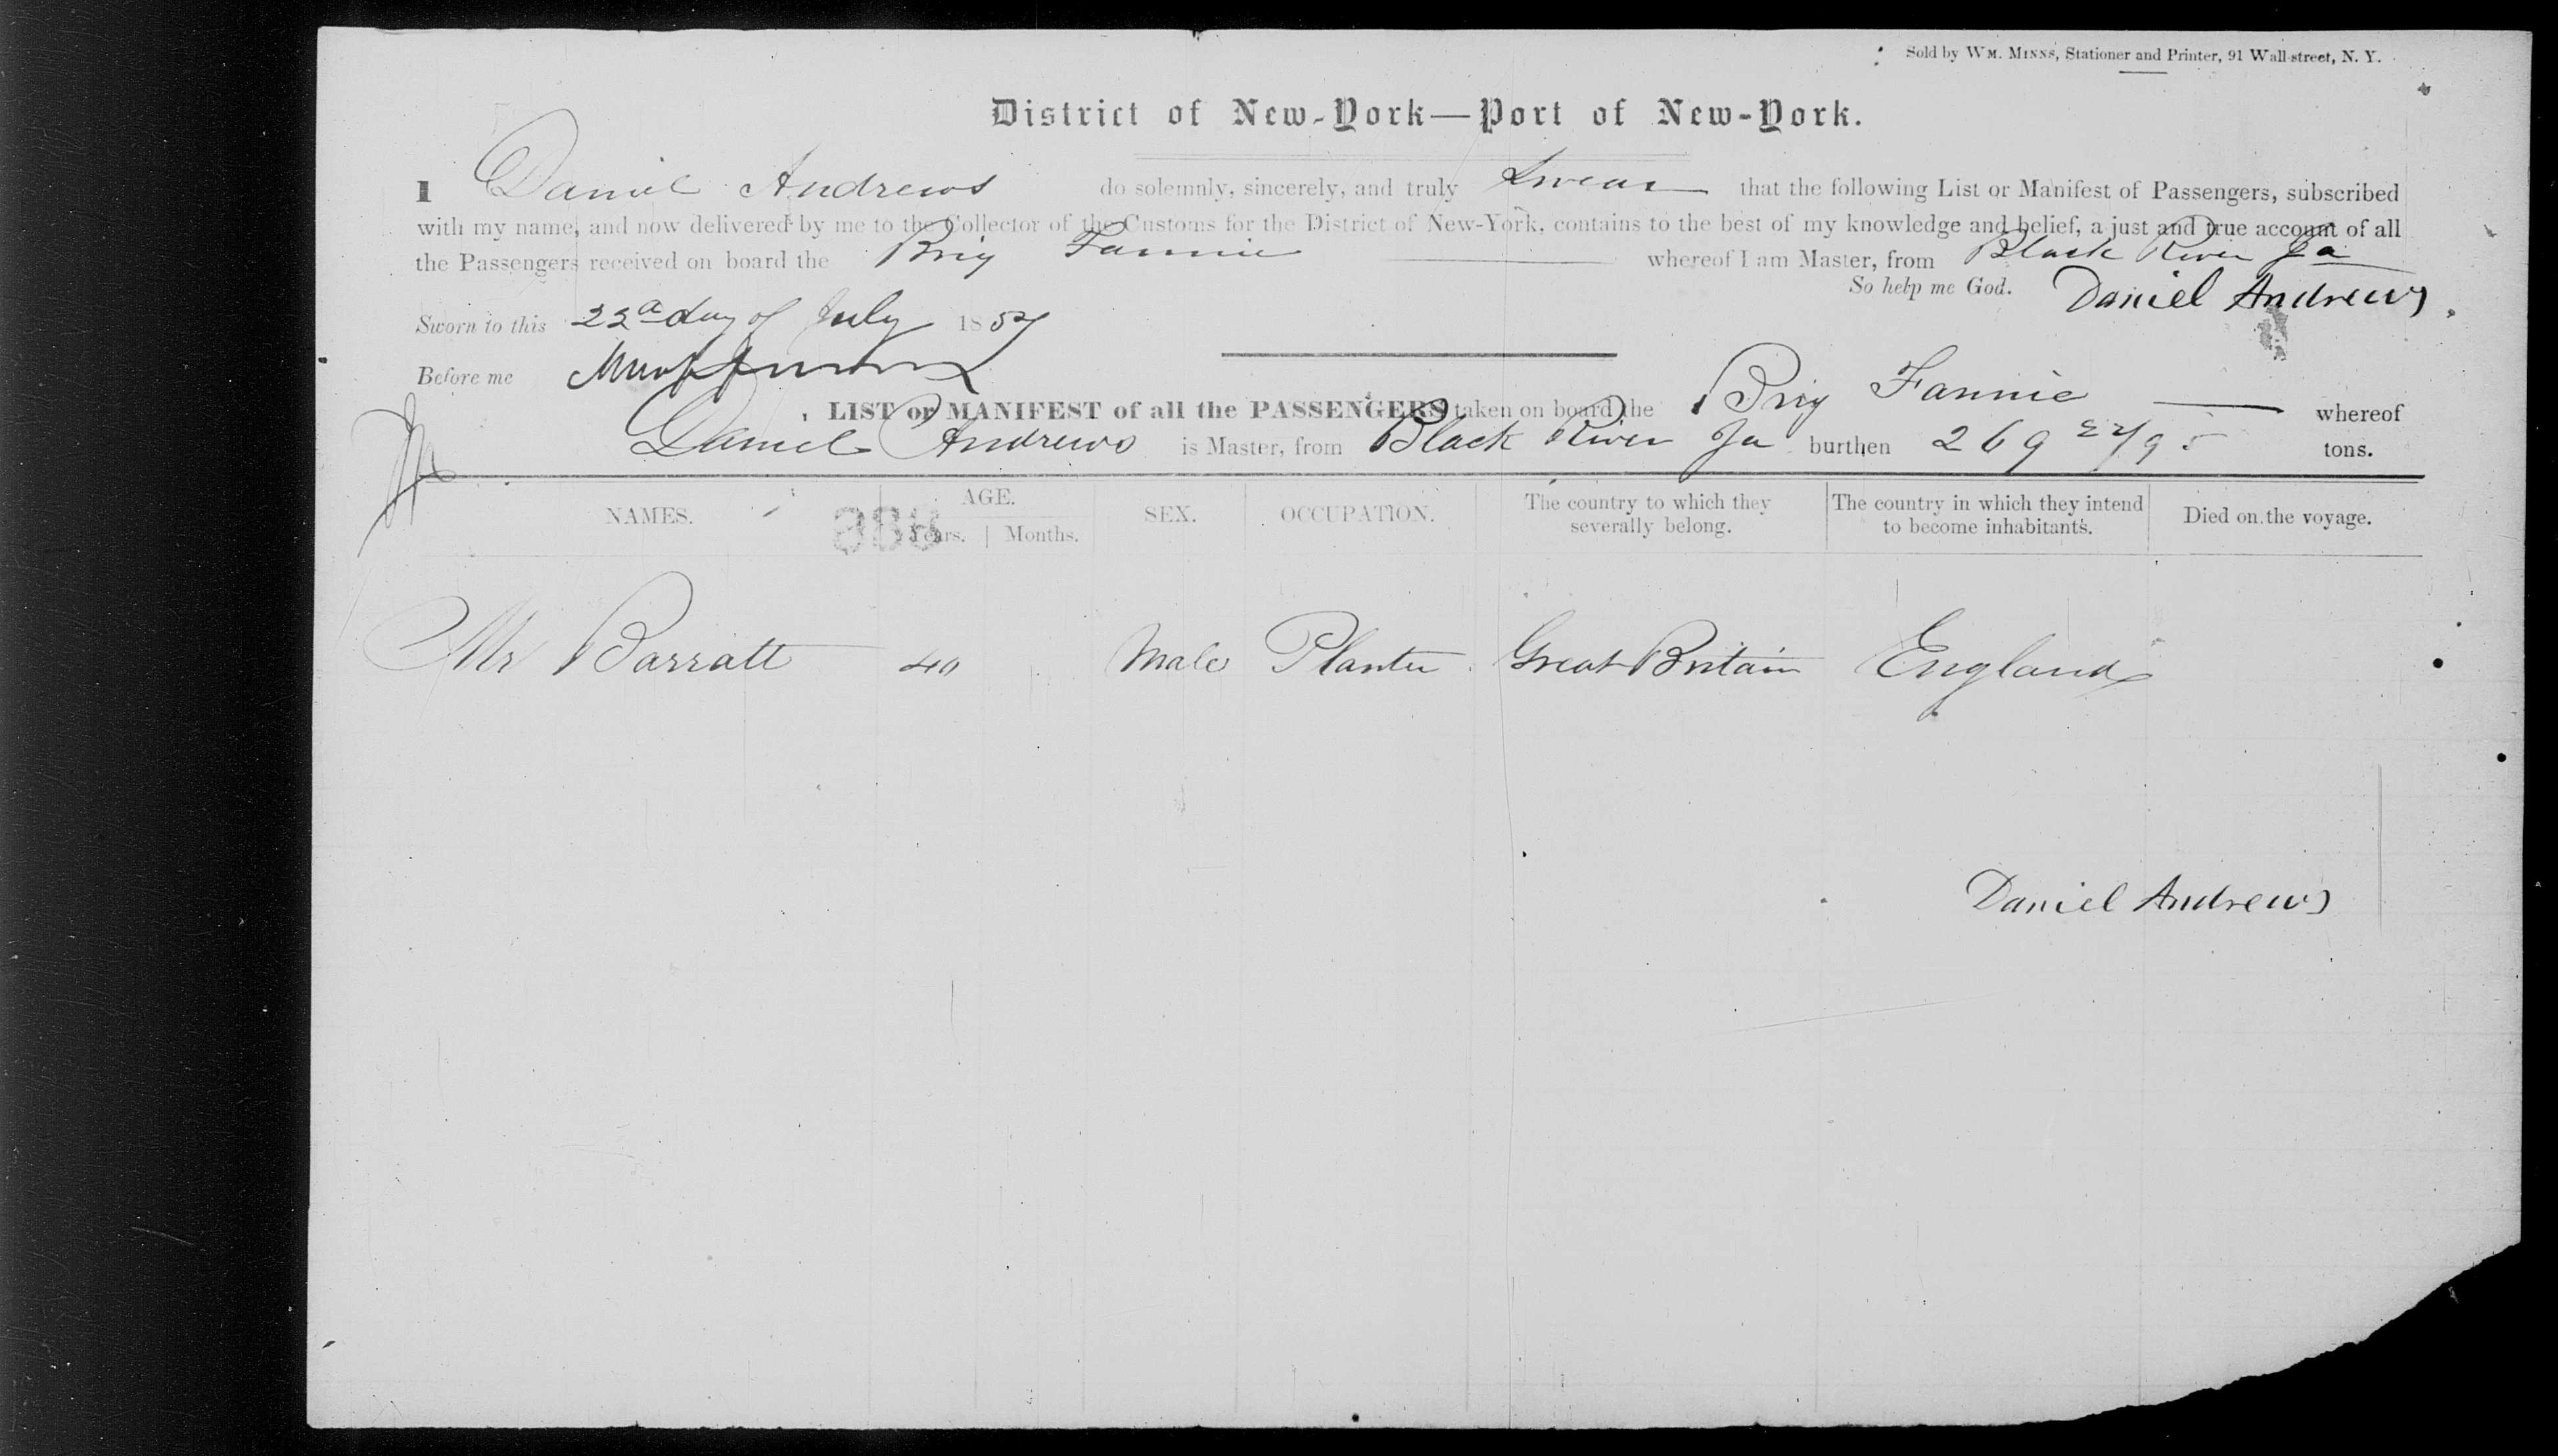 Sold by WM. MINNS, Stationer and Printer, 91 Wall-street, N. Y.
District of New-York—Port of New-York.
I Daniel Andrews do solemnly, sincerely, and truly Swear that the following List or Manifest of Passengers, subscribed
with my name, and now delivered by me to the Collector of the Customs for the District of New-York, contains to the best of my knowledge and belief, a just and true account of all
the Passengers received on board the Brig Fannie whereof I am Master, from Black River Ja
So help me God. Daniel Andrews
Sworn to this 22d day of July 1857
Before me
LIST or MANIFEST of all the PASSENGERS taken on board the Brig Fannie whereof
Daniel Andrews is Master, from Black River Ja burthen 269 24/95 tons.
NAMES. AGE. Years. Months. SEX. OCCUPATION. The country to which they severally belong. The country in which they intend to become inhabitants. Died on the voyage.
Mr Barratt 40 Male Planter Great Britain England
Daniel Andrews